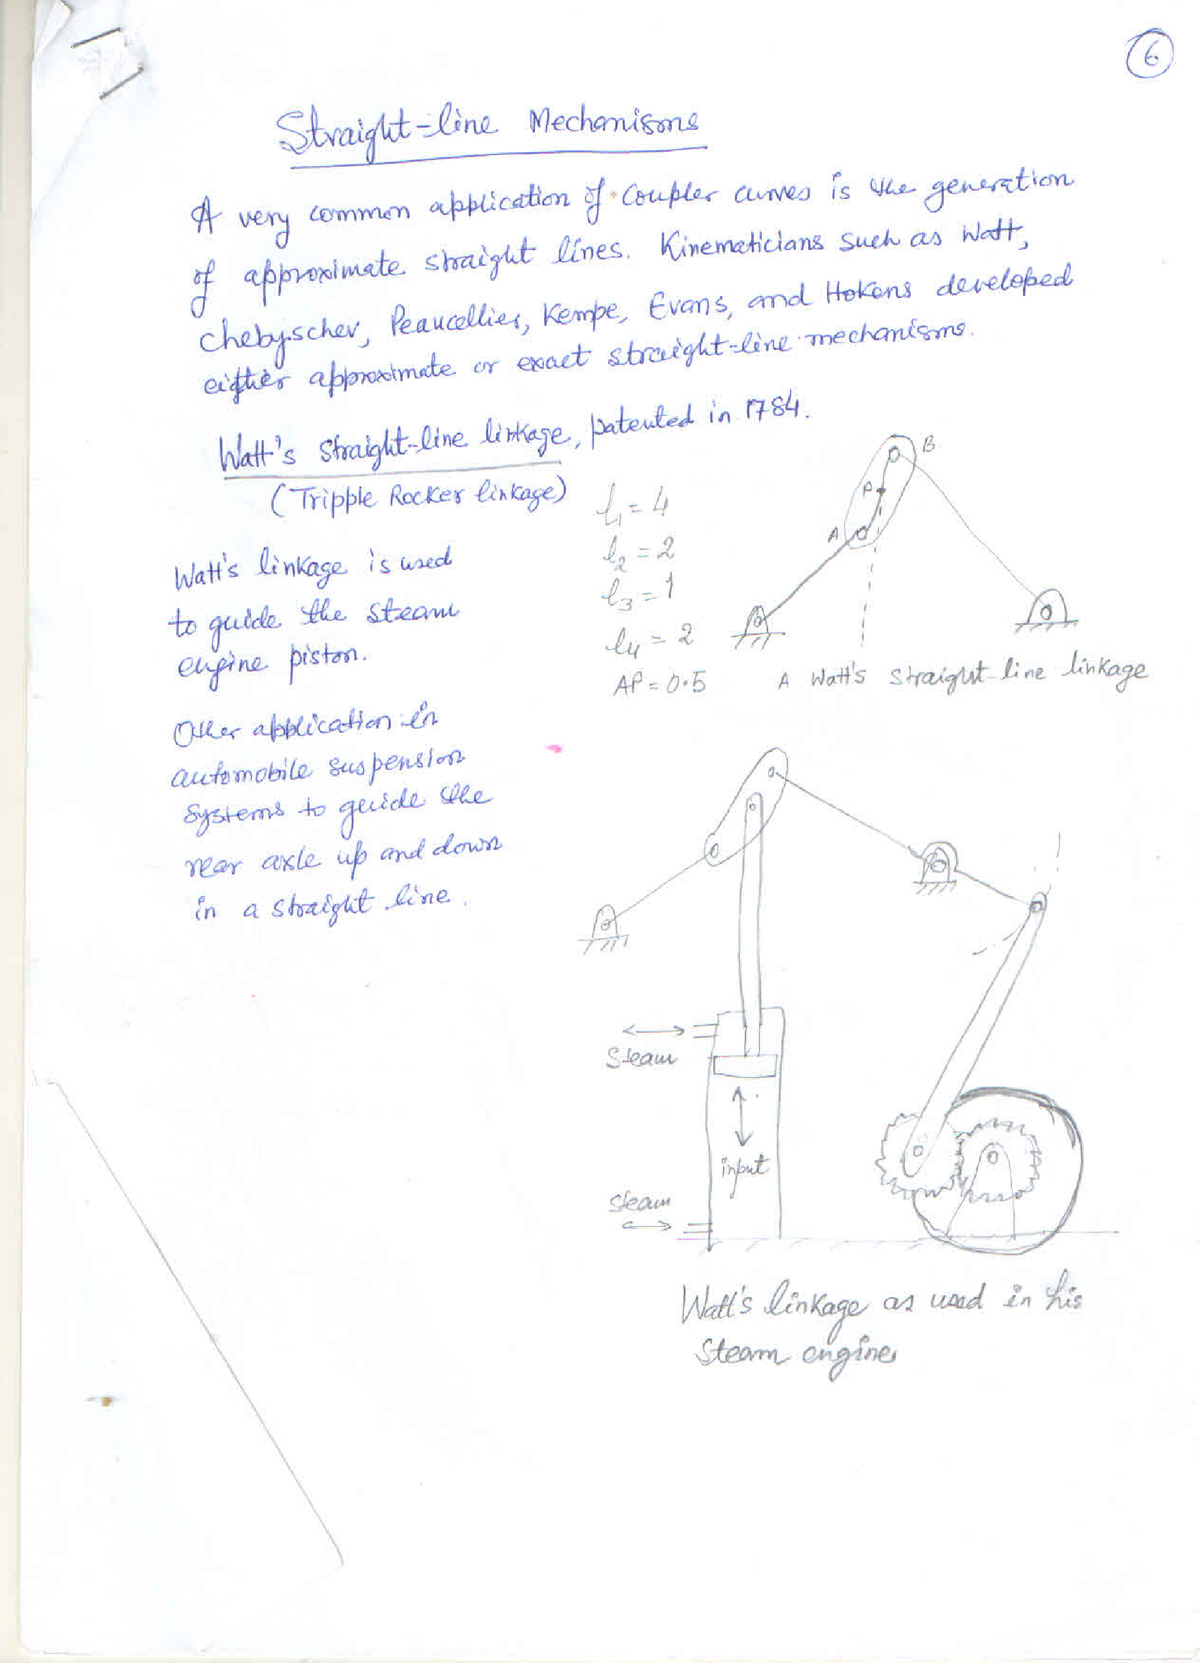 6
Straight-line Mechanisms
A very common application of coupler curves is the generation
of approximate straight lines. Kinematicians such as Watt,
Chebyschev, Peaucellier, Kempe, Evans, and Hokens developed
either approximate or exact straight-line mechanisms.
Watt's Straight-line linkage, patented in 1784.
(Tripple Rocker linkage)
Watt's linkage is used
to guide the steam
engine piston.
Other application in
automobile suspension
systems to guide the
rear axle up and down
in a straight line.
l1 = 4
l2 = 2
l3 = 1
l4 = 2
AP = 0.5
B
P
A
A Watt's straight-line linkage
Steam
input
Steam
Watt's linkage as used in his
Steam engine